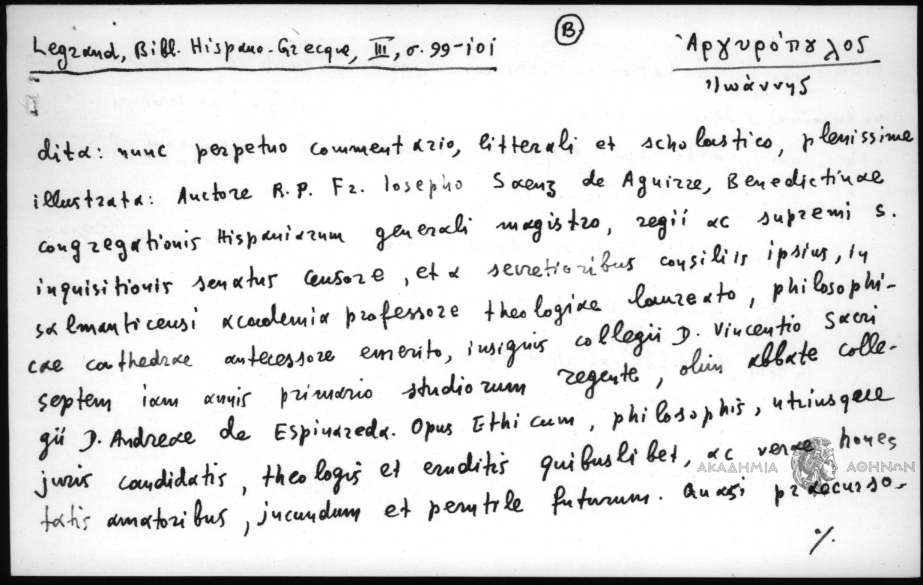 Legrand, Bibl. Hispano-Grecque, III, σ. 99-101
Β
Ἀργυρόπουλος
Ἰωάννης
dita: nunc perpetuo commentario, litterali et scholastico, plenissime
illustrata: Auctore R.P. Fr. Iosepho Saenz de Aguirre, Benedictinae
congregationis Hispaniarum generali magistro, regii ac supremi S.
inquisitionis senatus censore, et a secretioribus consiliis ipsius, in
salmanticensi academia professore theologiae laureato, philosophi-
cae cathedrae antecessore emerito, insignis collegii D. Vincentio Sacri
septem iam annis primario studiorum regente, olim abbate colle-
gii D. Andreae de Espinareda. Opus Ethicum, philosophis, utriusque
juris candidatis, theologis et eruditis quibuslibet, ac verae hones
tatis amatoribus, jucundum et perutile futurum. Quasi praecurso-
ΑΚΑΔΗΜΙΑ ΑΘΗΝΩΝ
%